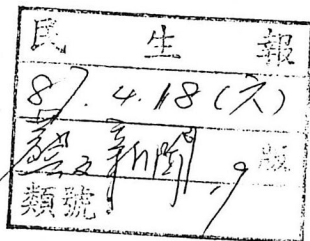 民生報
87.4.18(六)
藝文新聞.9版
類號: